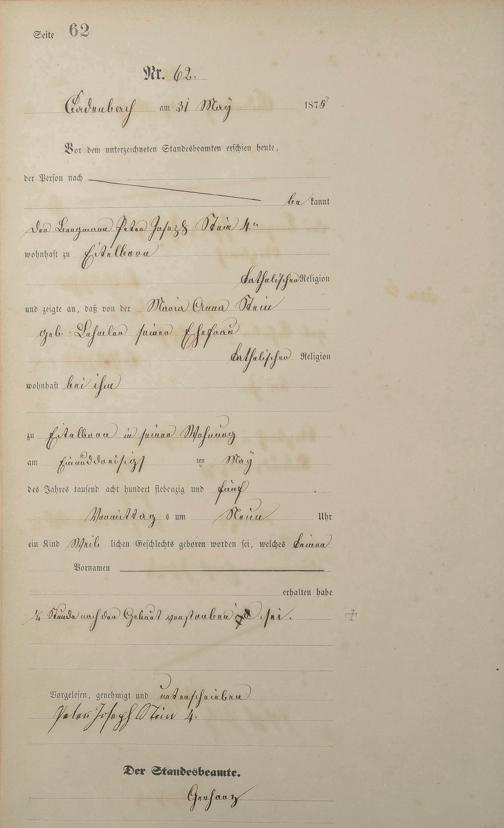 Seite 62
Nr. 62.
Cadenbach am 31 May 1875
Vor dem unterzeichneten Standesbeamten erschien heute,
der Person nach
be kannt
der Bergmann Peter Josef Stein 4r
wohnhaft zu Eitelborn
katholischer Religion
und zeigte an, daß von der Maria Anna Stein
geb. seiner Ehefrau
katholischer Religion
wohnhaft bei ihm
zu Eitelborn in seiner Wohnung
am Einunddreisigst ten May
des Jahres tausend acht hundert siebenzig und fünf
Vormittag s um Neun Uhr
ein Kind Weib lichen Geschlechts geboren worden sei, welches keinen
Vornamen
erhalten habe
¼ Stunde nach der Geburt verstorben sei.
Vorgelesen, genehmigt und unterschrieben
Peter Joseph Stein 4.
Der Standesbeamte.